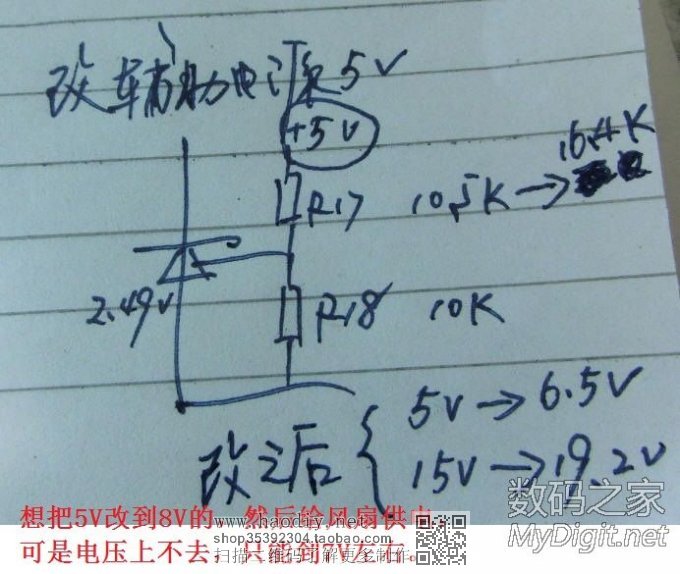 改辅助电源5V
+5V
R17 10.5K → 16.4K
2.49V
R18 10K
改之后 { 5V → 6.5V
15V → 19.2V
数码之家
MyDigit.net
想把5V改到8V的，然后给风扇供电。
www.haodiy.net
可是电压上不去，只能到7V左右。
shop35392304.taobao.com
扫描二维码了解更多制作